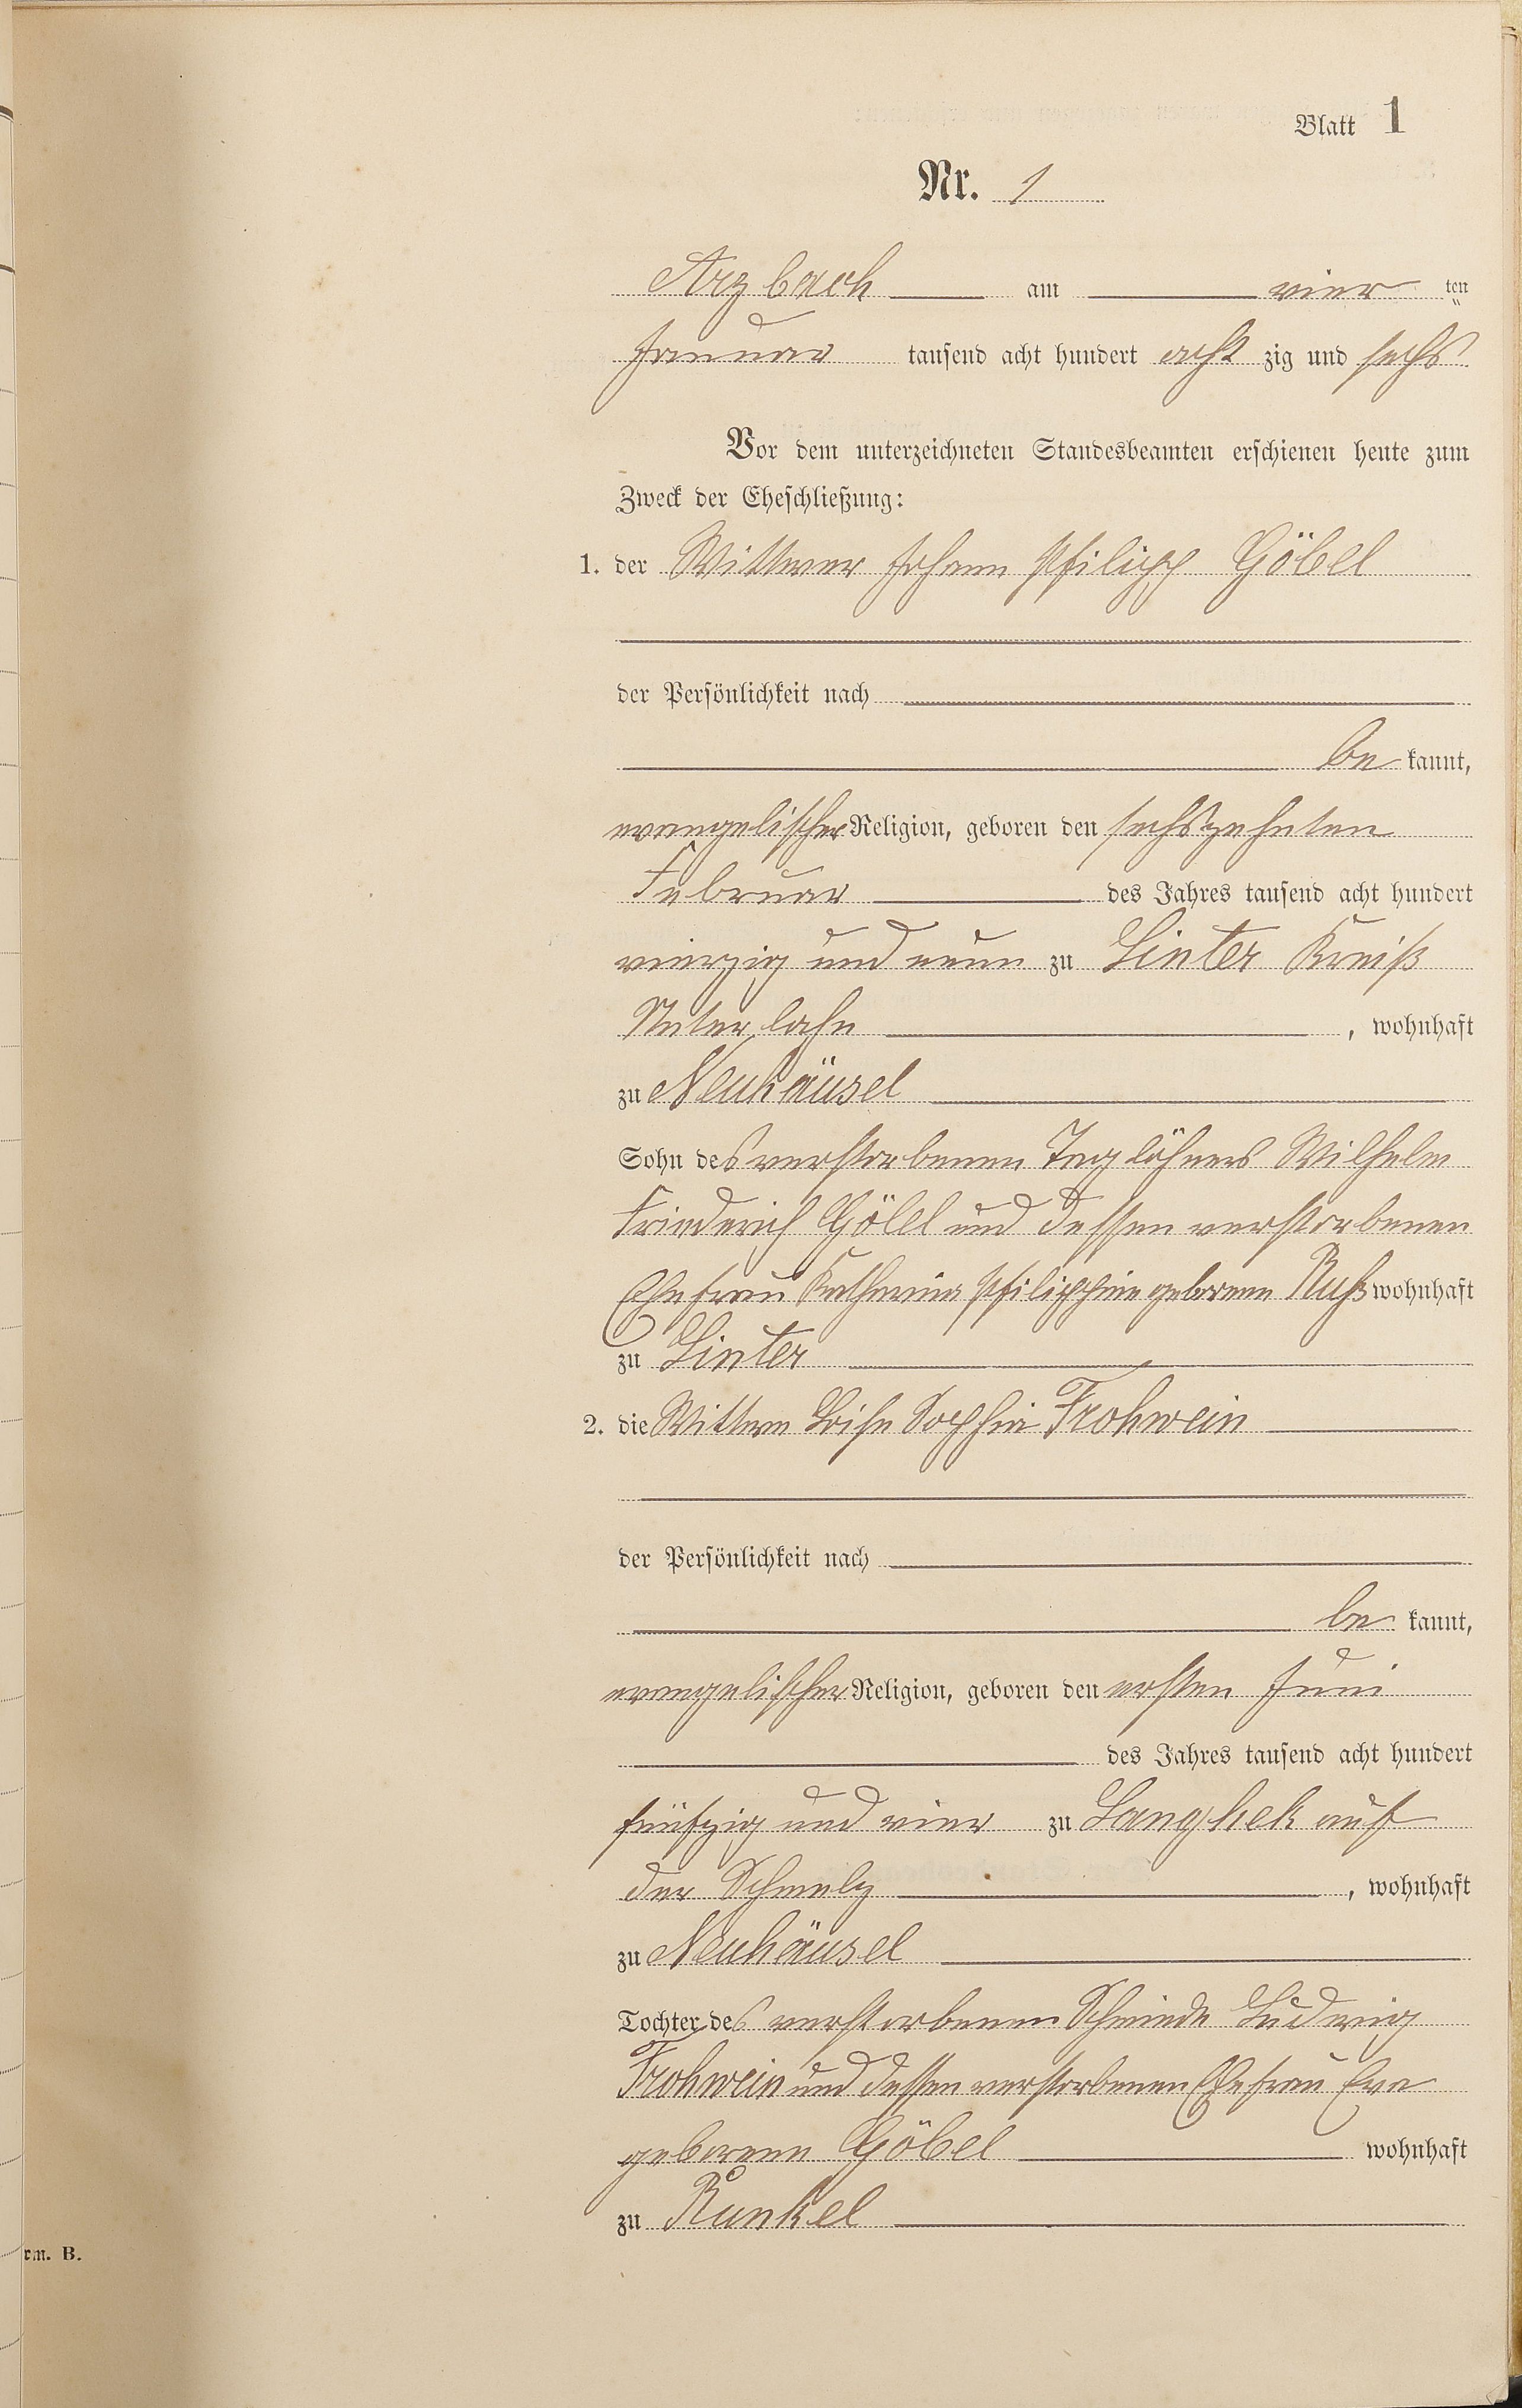 Blatt 1
Nr. 1
Arzbach am vier ten
Januar tausend acht hundert acht zig und sechs
Vor dem unterzeichneten Standesbeamten erschienen heute zum
Zweck der Eheschließung:
1. der Wittwer Johann Philipp Göbel
der Persönlichkeit nach
be kannt,
evangelischer Religion, geboren den sechszehnten
Februar des Jahres tausend acht hundert
vierzig und neun zu Linter Kreiß
Unterlahn, wohnhaft
zu Neuhäusel
Sohn des verstorbenen Taglöhners Wilhelm
Friederich Göbel und dessen verstorbenen
Ehefrau Katharina Philippine geborene Ruß wohnhaft
zu Linter
2. die Wittwe Loise Sophia Frohwein
der Persönlichkeit nach
be kannt,
evangelischer Religion, geboren den ersten Juni
des Jahres tausend acht hundert
fünfzig und vier zu Langhek auf
der Schmelz, wohnhaft
zu Neuhäusel
Tochter des verstorbenen Schmiede Ludwig
Frohwein und dessen verstorbenen Ehefrau Eva
geborene Göbel wohnhaft
zu Runkel
rm. B.